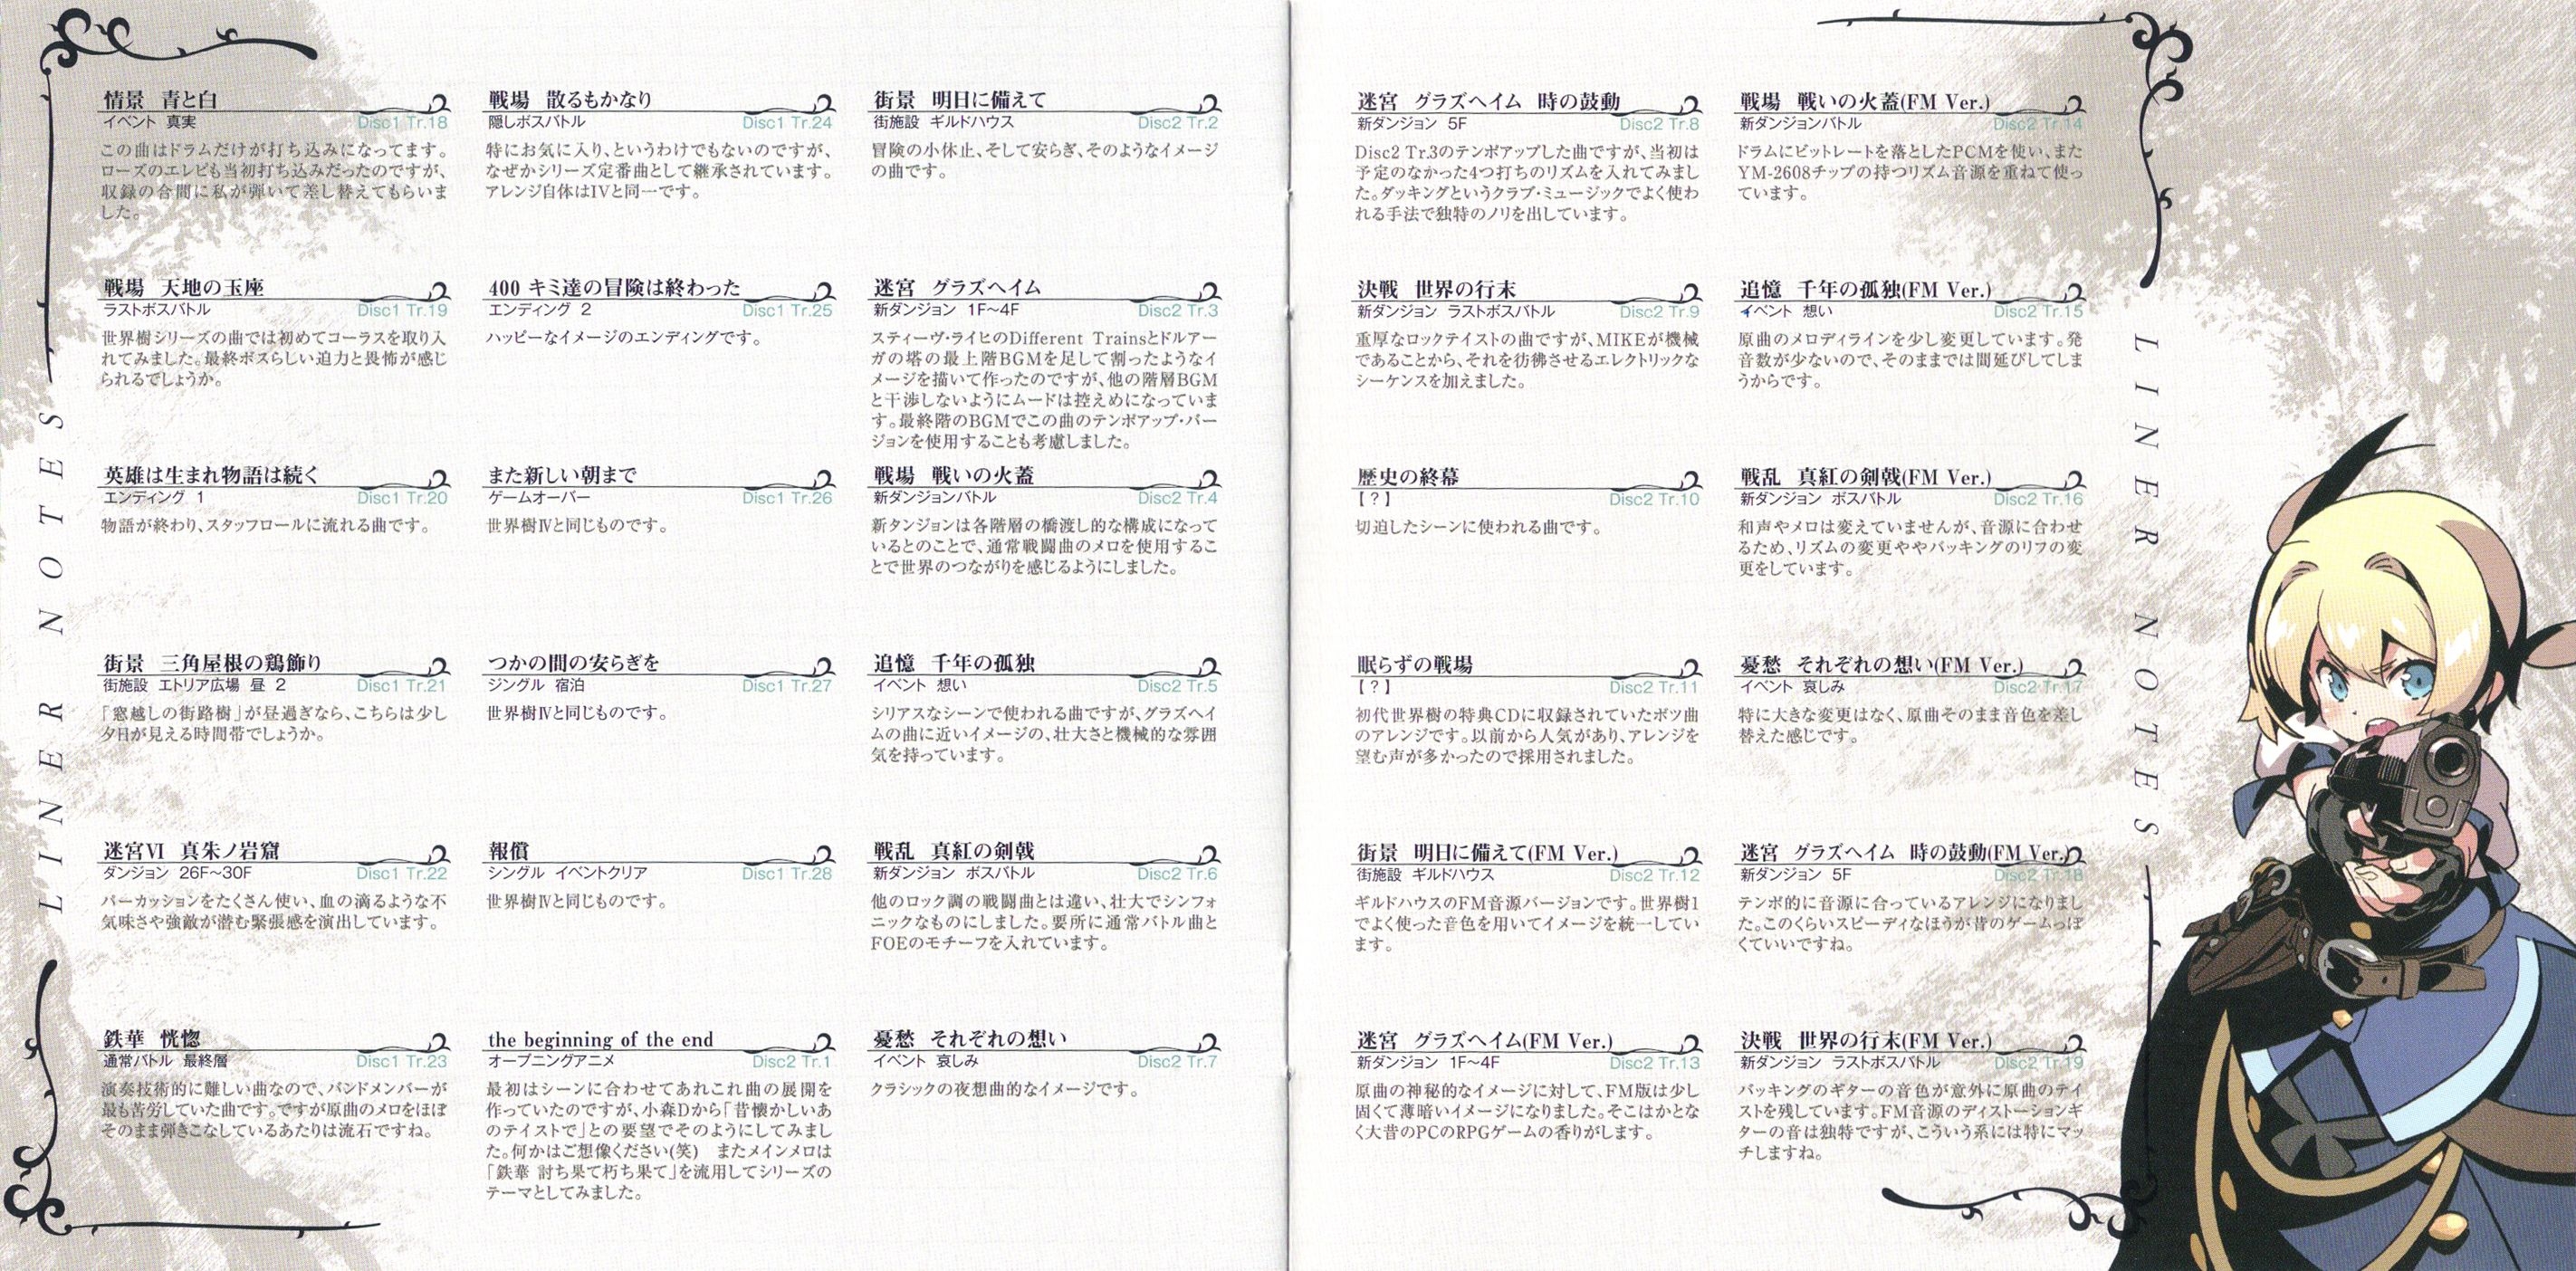 LINER NOTES
情景 青と白
イベント 真実 Disc1 Tr.18
この曲はドラムだけが打ち込みになってます。
ローズのエレピも当初打ち込みだったのですが、
収録の合間に私が弾いて差し替えてもらいま
した。
戦場 天地の玉座
ラストボスバトル Disc1 Tr.19
世界樹シリーズの曲では初めてコーラスを取り入
れてみました。最終ボスらしい迫力と畏怖が感じ
られるでしょうか。
英雄は生まれ物語は続く
エンディング 1 Disc1 Tr.20
物語が終わり、スタッフロールに流れる曲です。
街景 三角屋根の鶏飾り
街施設 エトリア広場 昼 2 Disc1 Tr.21
「窓越しの街路樹」が昼過ぎなら、こちらは少し
夕日が見える時間帯でしょうか。
迷宮VI 真朱ノ岩窟
ダンジョン 26F〜30F Disc1 Tr.22
パーカッションをたくさん使い、血の滴るような不
気味さや強敵が潜む緊張感を演出しています。
鉄華 恍惚
通常バトル 最終層 Disc1 Tr.23
演奏技術的に難しい曲なので、バンドメンバーが
最も苦労していた曲です。ですが原曲のメロをほぼ
そのまま弾きこなしているあたりは流石ですね。
戦場 散るもかなり
隠しボスバトル Disc1 Tr.24
特にお気に入り、というわけでもないのですが、
なぜかシリーズ定番曲として継承されています。
アレンジ自体はIVと同一です。
400 キミ達の冒険は終わった
エンディング 2 Disc1 Tr.25
ハッピーなイメージのエンディングです。
また新しい朝まで
ゲームオーバー Disc1 Tr.26
世界樹Ⅳと同じものです。
つかの間の安らぎを
ジングル 宿泊 Disc1 Tr.27
世界樹Ⅳと同じものです。
報償
シングル イベントクリア Disc1 Tr.28
世界樹Ⅳと同じものです。
the beginning of the end
オープニングアニメ Disc2 Tr.1
最初はシーンに合わせてあれこれ曲の展開を
作っていたのですが、小森Dから「昔懐かしいあ
のテイストで」との要望でそのようにしてみまし
た。何かはご想像ください(笑) またメインメロは
「鉄華 討ち果て朽ち果て」を流用してシリーズの
テーマとしてみました。
街景 明日に備えて
街施設 ギルドハウス Disc2 Tr.2
冒険の小休止、そして安らぎ、そのようなイメージ
の曲です。
迷宮 グラズヘイム
新ダンジョン 1F〜4F Disc2 Tr.3
スティーヴ・ライヒのDifferent Trainsとドルアー
ガの塔の最上階BGMを足して割ったようなイ
メージを描いて作ったのですが、他の階層BGM
と干渉しないようにムードは控えめになっていま
す。最終階のBGMでこの曲のテンポアップ・バー
ジョンを使用することも考慮しました。
戦場 戦いの火蓋
新ダンジョンバトル Disc2 Tr.4
新タンジョンは各階層の橋渡し的な構成になって
いるとのことで、通常戦闘曲のメロを使用するこ
とで世界のつながりを感じるようにしました。
追憶 千年の孤独
イベント 想い Disc2 Tr.5
シリアスなシーンで使われる曲ですが、グラズヘイ
ムの曲に近いイメージの、壮大さと機械的な雰囲
気を持っています。
戦乱 真紅の剣戟
新ダンジョン ボスバトル Disc2 Tr.6
他のロック調の戦闘曲とは違い、壮大でシンフォ
ニックなものにしました。要所に通常バトル曲と
FOEのモチーフを入れています。
憂愁 それぞれの想い
イベント 哀しみ Disc2 Tr.7
クラシックの夜想曲的なイメージです。
迷宮 グラズヘイム 時の鼓動
新ダンジョン 5F Disc2 Tr.8
Disc2 Tr.3のテンポアップした曲ですが、当初は
予定のなかった4つ打ちのリズムを入れてみまし
た。ダッキングというクラブ・ミュージックでよく使わ
れる手法で独特のノリを出しています。
決戦 世界の行末
新ダンジョン ラストボスバトル Disc2 Tr.9
重厚なロックテイストの曲ですが、MIKEが機械
であることから、それを彷彿させるエレクトリックな
シーケンスを加えました。
歴史の終幕
【?】 Disc2 Tr.10
切迫したシーンに使われる曲です。
眠らずの戦場
【?】 Disc2 Tr.11
初代世界樹の特典CDに収録されていたボツ曲
のアレンジです。以前から人気があり、アレンジを
望む声が多かったので採用されました。
街景 明日に備えて(FM Ver.)
街施設 ギルドハウス Disc2 Tr.12
ギルドハウスのFM音源バージョンです。世界樹1
でよく使った音色を用いてイメージを統一してい
ます。
迷宮 グラズヘイム(FM Ver.)
新ダンジョン 1F〜4F Disc2 Tr.13
原曲の神秘的なイメージに対して、FM版は少し
固くて薄暗いイメージになりました。そこはかとな
く大昔のPCのRPGゲームの香りがします。
戦場 戦いの火蓋(FM Ver.)
新ダンジョンバトル Disc2 Tr.14
ドラムにビットレートを落としたPCMを使い、また
YM-2608チップの持つリズム音源を重ねて使っ
ています。
追憶 千年の孤独(FM Ver.)
イベント 想い Disc2 Tr.15
原曲のメロディラインを少し変更しています。発
音数が少ないので、そのままでは間延びしてしま
うからです。
戦乱 真紅の剣戟(FM Ver.)
新ダンジョン ボスバトル Disc2 Tr.16
和声やメロは変えていませんが、音源に合わせ
るため、リズムの変更ややバッキングのリフの変
更をしています。
憂愁 それぞれの想い(FM Ver.)
イベント 哀しみ Disc2 Tr.17
特に大きな変更はなく、原曲そのまま音色を差し
替えた感じです。
迷宮 グラズヘイム 時の鼓動(FM Ver.)
新ダンジョン 5F Disc2 Tr.18
テンポ的に音源に合っているアレンジになりまし
た。このくらいスピーディなほうが昔のゲームっぽ
くていいですね。
決戦 世界の行末(FM Ver.)
新ダンジョン ラストボスバトル Disc2 Tr.19
バッキングのギターの音色が意外に原曲のテイ
ストを残しています。FM音源のディストーションギ
ターの音は独特ですが、こういう系には特にマッ
チしますね。
LINER NOTES